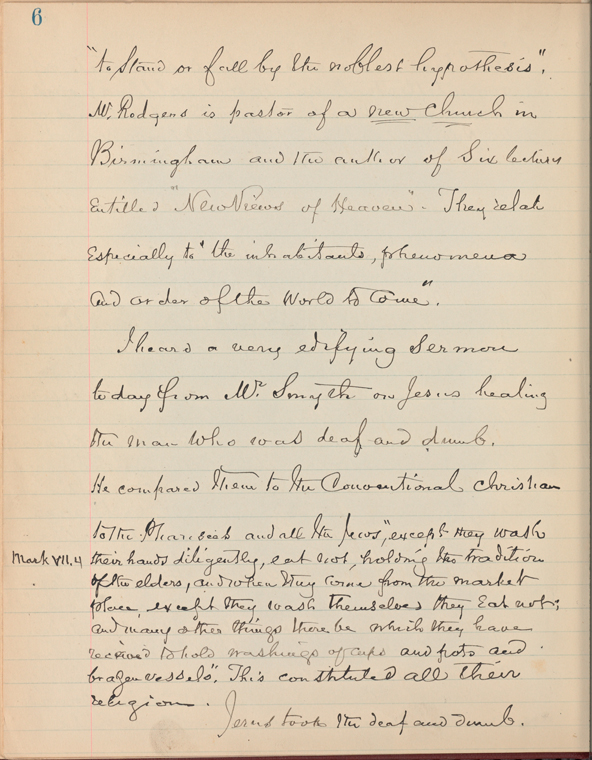 6
"to stand or fall by the noblest hypothesis".
Mr. Rodgers is pastor of a new Church in
Birmingham and the author of Six lectures
Entitled "New Views of Heaven". They relate
Especially to "the inhabitants, phenomena
and order of the World to Come".
I heard a very edifying Sermon
today from Mr. Smyth on Jesus healing
the man who was deaf and dumb.
He compared them to the Conventional Christian
to the Pharisees and all the Jews, "except they wash
Mark VII.4 their hands diligently, eat not, holding the tradition
of the elders, and when they come from the market
place, except they wash themselves they Eat not;
and many other things there be which they have
received to hold washings of cups and pots and
brazen vessels". This constituted all their
religion.
Jesus took the deaf and dumb.